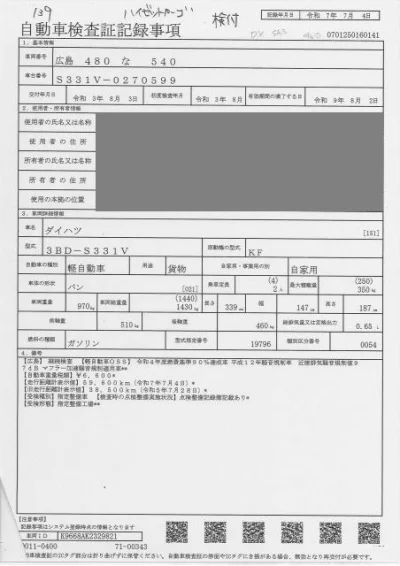 139
ハイゼットカーゴ
検付
記録年月日 令和 7年 7月 4日
自動車検査証記録事項
0701250160141
1. 基本情報
車両番号 広島 480 な 540
車台番号 S331V-0270599
交付年月日 令和 3年 8月 3日 初度検査年月 令和 3年 8月 有効期間の満了する日 令和 9年 8月 2日
2. 使用者・所有者情報
使用者の氏名又は名称
使用者の住所
所有者の氏名又は名称
所有者の住所
使用の本拠の位置
3. 車両詳細情報
車名 ダイハツ [181]
型式 3BD-S331V 原動機の型式 KF
自動車の種別 軽自動車 用途 貨物 自家用・事業用の別 自家用
車体の形状 バン [021] 乗車定員 (4) 2人 最大積載量 (250) 350kg
車両重量 970kg 車両総重量 (1440) 1430kg 長さ 339cm 幅 147cm 高さ 187cm
前軸重 510kg 後軸重 460kg 総排気量又は定格出力 0.65L
燃料の種類 ガソリン 型式指定番号 19796 類別区分番号 0054
4. 備考
【広島】 継続検査 【軽自動車OSS】 令和4年度燃費基準90%達成車 平成12年騒音規制車 近接排気騒音規制値9
7dB マフラー加速騒音規制適用車**
【自動車重量税額】¥6,600*
【走行距離計表示値】59,600km(令和7年7月4日)*
【旧走行距離計表示値】38,500km(令和5年7月28日)*
【受検種別】指定整備車 【検査時の点検整備実施状況】点検整備記録簿記載あり*
【受検形態】指定整備工場**
[注意事項]
記録事項はシステム登録時点の情報となります
車両ID K9668AK2329821
0011-0400 71-00343